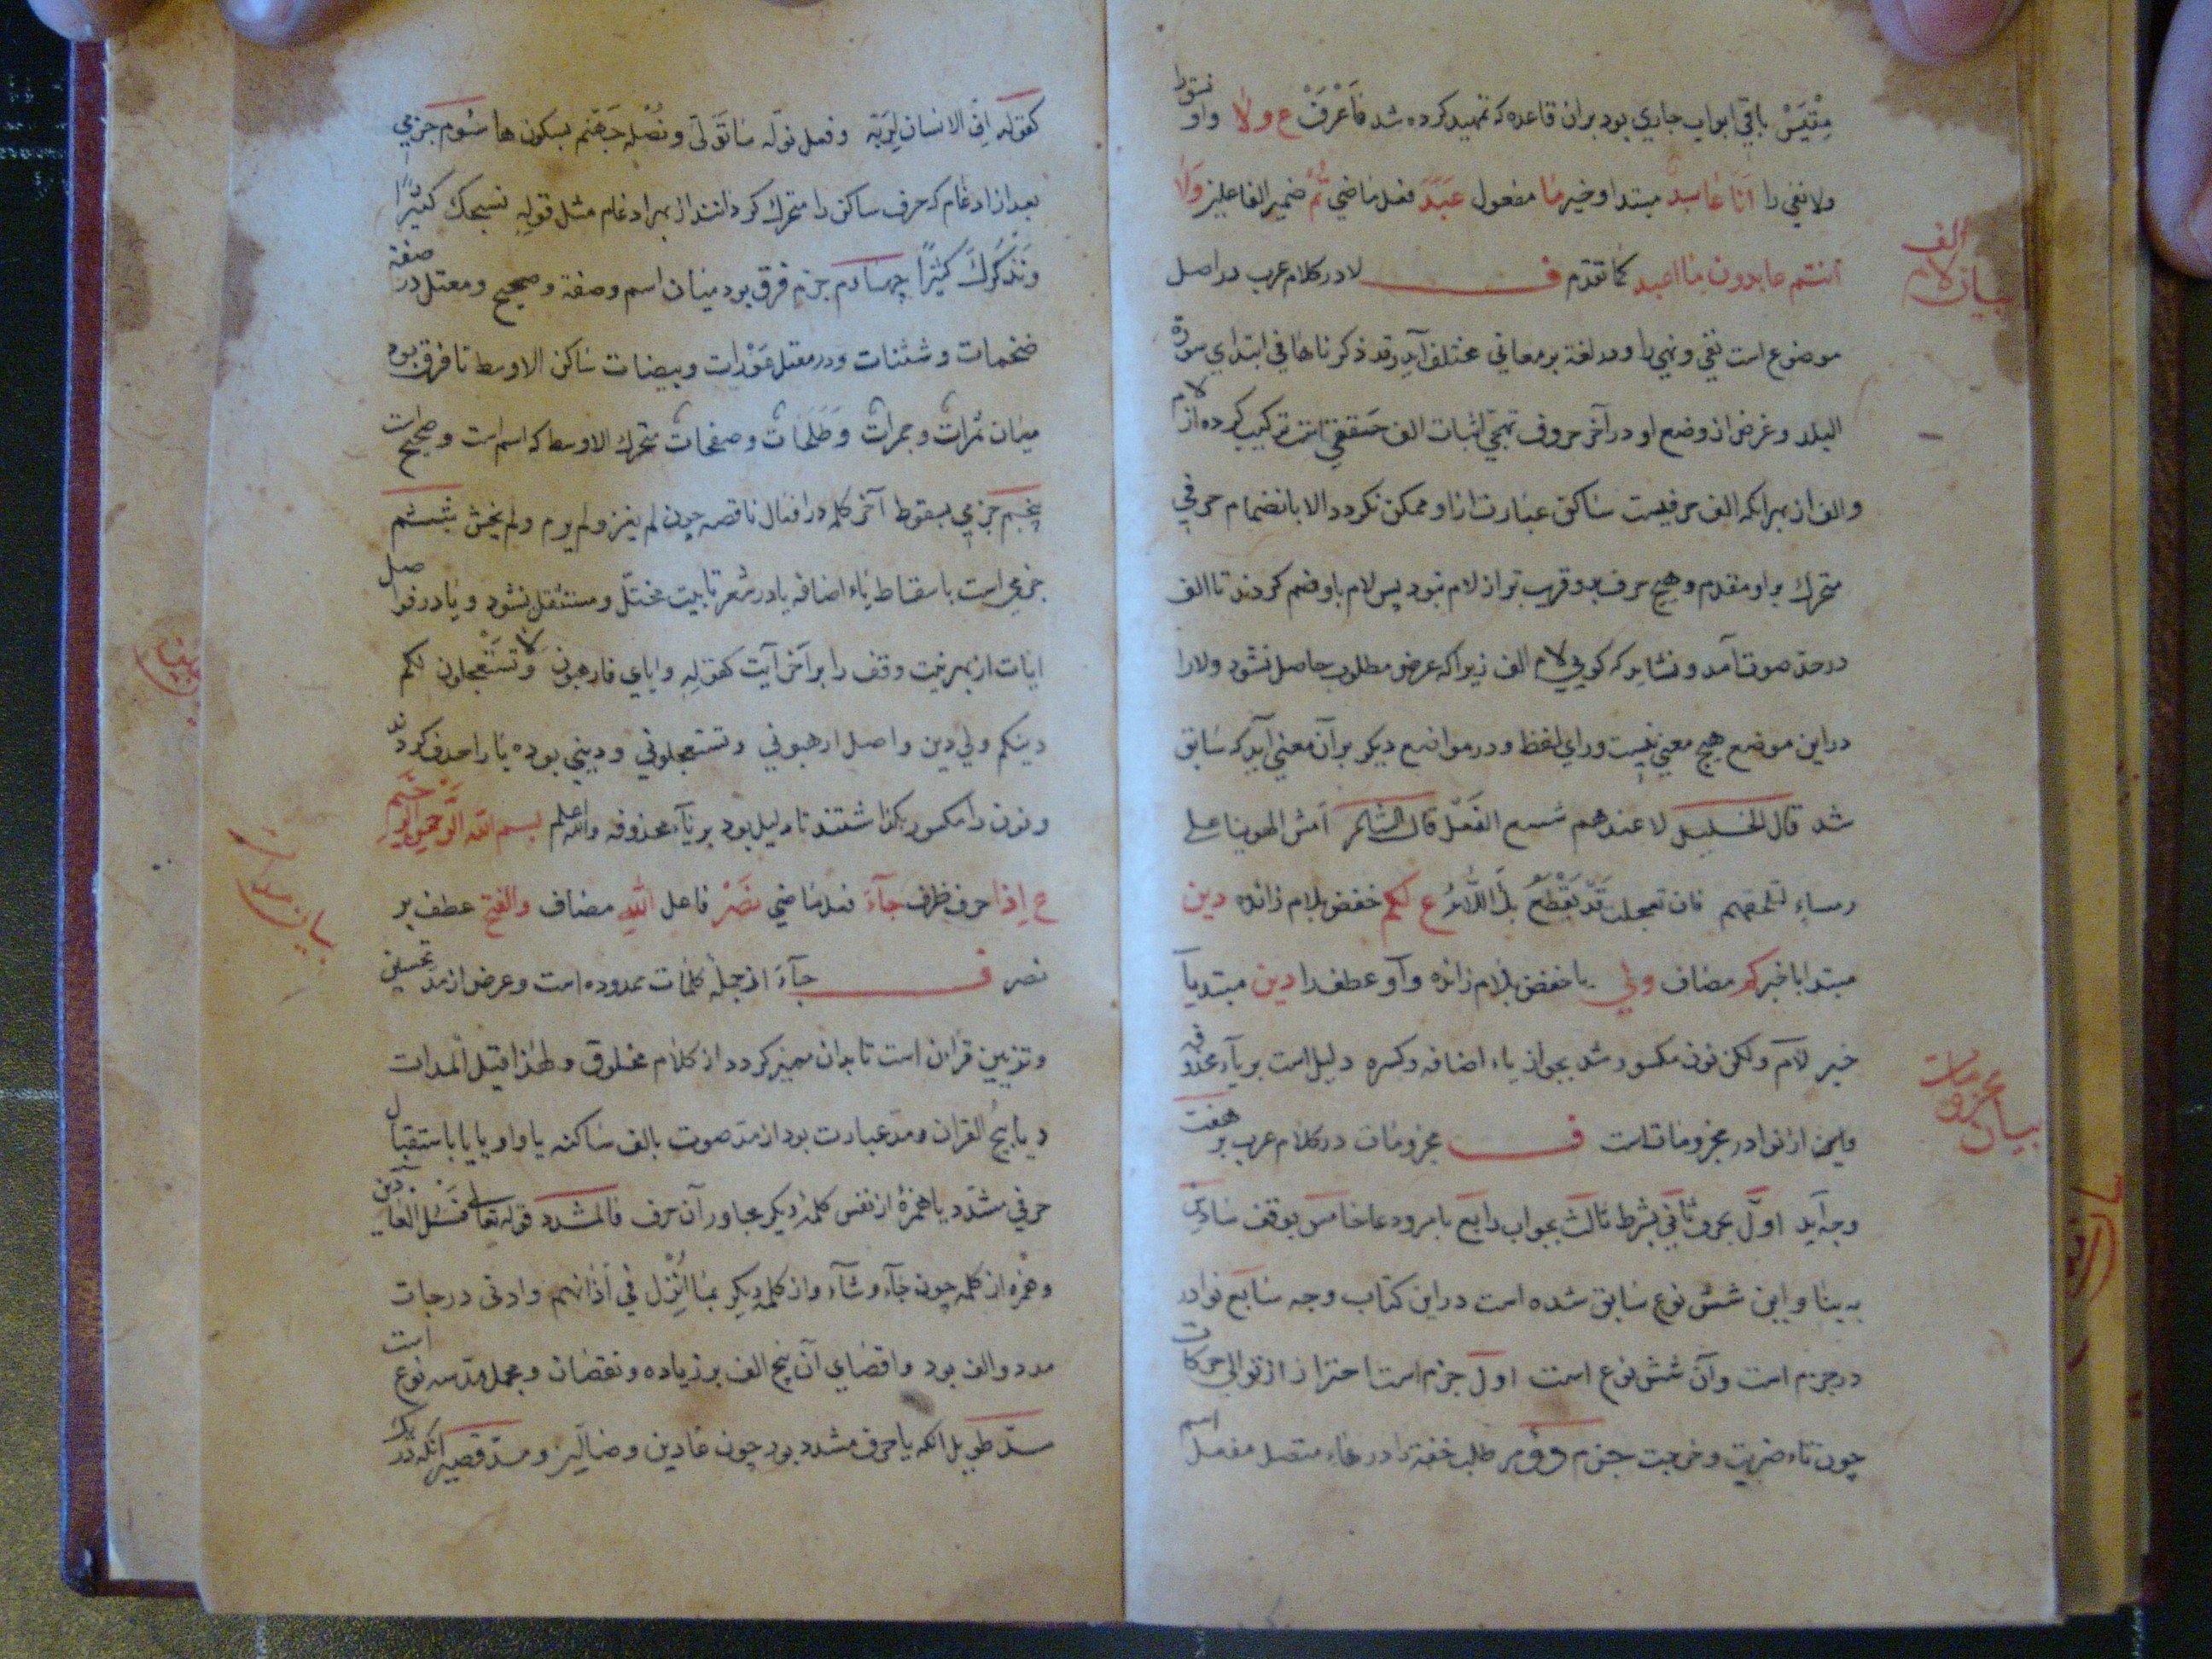 مِتْيَسْ باقي ابواب جاري بود بران قاعده كه تمهيد كرده شد فَاعْرَفْ ع ولا واو نسق را
ولا نفي را اَنَا عَابد مبتدا وخبر مَا مفعول عَبَدَ فعل ماضي تُم ضمير الفاعلين وَلَا
انتم عابدون ما اعبد كما تقدم ف لا در كلام عرب در اصل
بيان لام الف
موضوع است نفي ونهي را ودر لغة بر معاني مختلف آيد وقد ذكرناها في ابتداي سورة
البلد وغرض از وضع او در آخر حروف تهجي اثبات الف حقيقي است تركيب كرده از لام
والف از بهر انكه الف حرفيست ساكن عبارت ازو ممكن نكردد الا بانضمام حرفي
متحرك برو مقدم وهيچ حرف بدو قريب تر از لام نبود پس لام باو ضم كردند تا الف
در حد صوت آمد ونشايد كه كويي لام الف زيرا كه غرض مطلوب حاصل نشود ولا را
در اين موضع هيچ معني نيست وراي لفظ ودر مواضع ديكر بر آن معني آيد كه سابق
شد قال الخليل لا عندهم شسع النَعْل قال الشاعر امش الهوينا على
رساء لتلحقهم فان تعجلت قد يَقْطَعُ بك اللاءُ ع لكم خفض بلام زائده دين
مبتدا با خبر كم مضاف ولي يا خفض بلام زائده وآو عطف را دين مبتد يآ
خبر لام ولكن نون مكسور شد بجواز ياء اضافه وكسره دليل است بر يآء محذوفه
بيان مجزومات
واين از نوادر مجزومات است ف مجزومات در كلام عرب بر هفت
وجه آيد اوّل بحرف ثاني بشرط ثالث بجواب رابع بامر ودعا خامس بوقف سادس
به بنا واين شش نوع سابق شده است در اين كتاب وجه سابع نوادر
در جزم است وآن شش نوع است اول جزم است احتراز از توالي حركات
چون تاء ضربت وخرجت جزم دوم بر طلب خفة را در هاء متصل مفعل اسم
كقوله اِنّ الانسان لِرَبّه وفعل نولّه مَا تَوَلّى ونُصْله جَهَنّم بسكون ها سُوم جزمي
بعد از ادغام كه حرف ساكن را متحرك كردانند از بهر ادغام مثل قوله نسبحك كثيرًا
ونَذْكُرُكَ كثيرًا چهارم جزم فرق بود ميان اسم وصفة وصحيح ومعتل در صفة
ضخمات وشثنات ودر معتل عَوْرات وبيضات ساكن الاوسط تا فرق بود
ميان ثمرات وجمرات وطَلَحات وصفحات متحرك الاوسط كه اسم است وصحيح است
پنجم جزمي بسقوط آخر كلمه در افعال ناقصه چون لم يغز ولم يرم ولم يخش ششم
جزمي است باسقاط ياء اضافه يا در شعر تا بيت مختلّ ومستثقل نشود ويا در فواصل
ايات از بهر نيت وقف را بر آخر آيت كقوله واياي فارهبون ولا تستعجلون لكم
دينكم ولي دين واصل ارهبوني وتستعجلوني وديني بوده يا را حذف كردند
ونون را مكسور بكذاشتند تا دليل بود بر يآء محذوفه والله اعلم بسم الله الرّحمن الرّحيم
ع اِذا حرف ظرف جآءَ فعل ماضي نَصْر فاعل الله مضاف والفتح عطف بر
نصر ف جآءَ از جمله كلمات ممدوده است وغرض از مد تحسين
وتزيين قران است تا بدان مميز كردد از كلام مخلوق ولهذا قيل المدات
ديابيج القران ومد عبارت بود از مد صوت بالف ساكنه يا واو يا يا باستقبال
حرفي مشدد يا همزهٔ از نفس كلمه ديكر مجاور آن حرف فالمشدد قوله تعالى فَسْئل العادّين
وهمزه از كلمه چون جآء وشآء واز كلمه ديكر بمَا انُزِل في آذانهم وادنى درجات
مد دو الف بود واقصاي آن پنج الف بر زياده ونقصان وجمل مد سه نوع است
مدّ طويل انكه با حرف مشدد بود چون عادين وضالّين ومدّ قصير انكه در